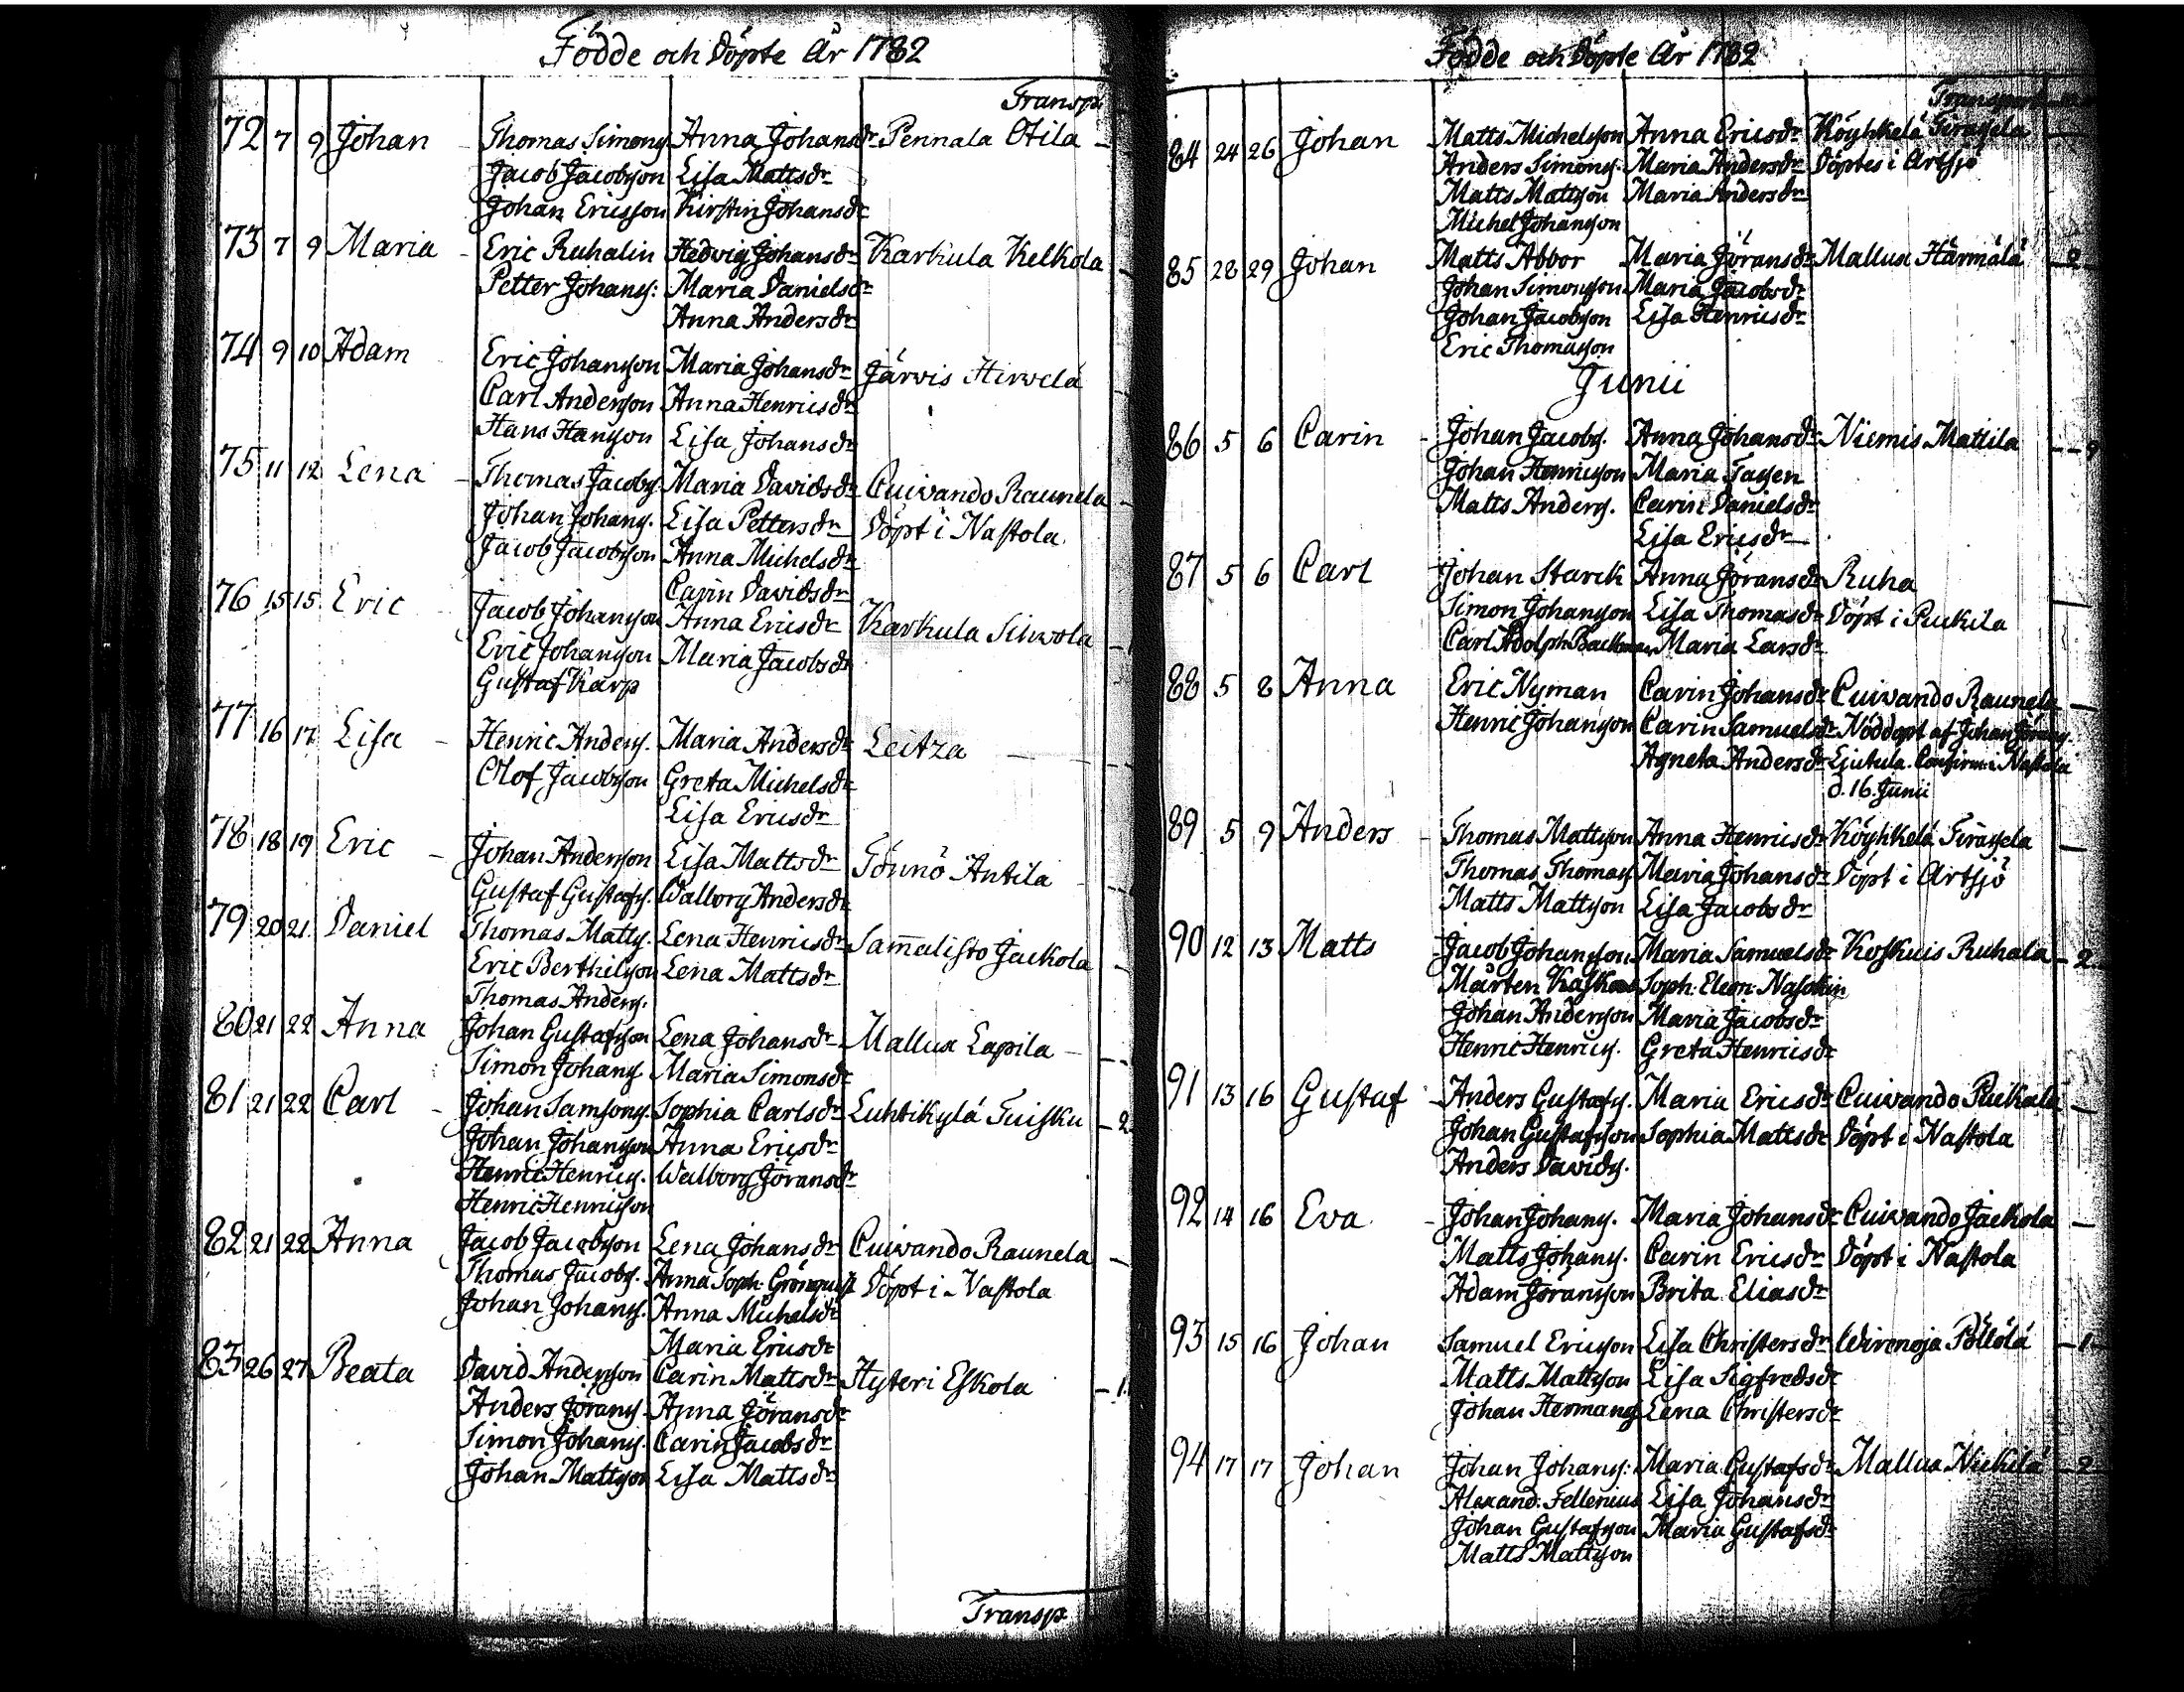 Födde och Döpte År 1782
Transp.
72 7 9 Johan - Thomas Simons. Anna Johansdr Pennala Otila -
Jacob Jacobsson Lisa Mattsdr
Johan Ericsson Kirstin Johansdr
73 7 9 Maria - Eric Ruhalin Hedvig Johansdr Karkula Kelkola
Petter Johans: Maria Danielsdr
Anna Andersdr
74 9 10 Adam Eric Johansson Maria Johansdr Järvis Hirvelä
Carl Andersson Anna Henricsdr
Hans Hansson Lisa Johansdr
75 11 12 Lena - Thomas Jacobs. Maria Davidsdr Cuivando Raunela -
Johan Johans. Lisa Pettersdr Döpt i Nastola
Jacob Jacobsson Anna Michelsdr
Carin Davidsdr
76 15 15 Eric Jacob Johansson Anna Ericsdr Karkula Silwola - 1
Eric Johansson Maria Jacobsdr
Gustaf Karp
77 16 17 Lisa - Henric Anders. Maria Andersdr Leitza -
Olof Jacobsson Greta Michelsdr
Lisa Ericsdr
78 18 19 Eric - Johan Andersson Lisa Mattsdr Tönnö Antila
Gustaf Gustafs. Walborg Andersdr
79 20 21 Daniel Thomas Matts. Lena Henricsdr Sam̄alisto Jackola -
Eric Berthilsson Lena Mattsdr
Thomas Anders.
80 21 22 Anna Johan Gustafsson Lena Johansdr Mallux Lapila -
Simon Johans Maria Simonsdr
81 21 22 Carl - Johan Samsons. Sophia Carlsdr Luhtikylä Tuisku - 2
Johan Johansson Anna Ericsdr
Henric Henrics. Walborg Jöransdr
Henric Henricsson
82 21 22 Anna Jacob Jacobsson Lena Johansdr Cuivando Raunela -
Thomas Jacobs. Anna Soph. Grönquist Döpt i Nastola
Johan Johans. Anna Michelsdr
Maria Ericsdr
83 26 27 Beata David Andersson Carin Mattsdr Hyteri Eskola - 1
Anders Jörans. Anna Jöransdr
Simon Johans. Carin Jacobsdr
Johan Mattsson Lisa Mattsdr
Transp
Födde och Döpte År 1782
Transport
84 24 26 Johan - Matts Michelsson Anna Ericsdr Köyhkelä Tirassela
Anders Simons. Maria Andersdr Döptes i Artsjö
Matts Mattsson Maria Andersdr
Michel Johansson
85 28 29 Johan Matts Abbor Maria Jöransdr Mallux Härmälä - 2
Johan Simonsson Maria Jacobsdr
Johan Jacobsson Lisa Henricsdr
Eric Thomasson
Junii
86 5 6 Carin - Johan Jacobs. Anna Johansdr Niemis Mattila - -
Johan Henricsson Maria Tagen
Matts Anders. Carin Danielsdr
Lisa Ericsdr
87 5 6 Carl Johan Starck Anna Jöransdr Ruha
Simon Johansson Lisa Thomasdr Döpt i Puckila
Carl Adolph Backman Maria Larsdr
88 5 8 Anna Eric Nyman Carin Johansdr Cuivando Raunela -
Henric Johansson Carin Samuelsdr Nöddöpt af Johan Jörans.
Agneta Andersdr Ljutula. Confirm: i Nastola
d. 16. Junii
89 5 9 Anders - Thomas Mattsson Anna Henricsdr Köyhkelä Tirassela
Thomas Thomass. Maria Johansdr Döpt i Artsjö
Matts Mattsson Lisa Jacobsdr
90 12 13 Matts Jacob Johansson Maria Samuelsdr Koskuis Ruhala - 2
Mårten Soph: Eleon:
Johan Andersson Maria Jacobsdr
Henric Henrics. Greta Henricsdr
91 13 16 Gustaf - Anders Gustafs. Maria Ericsdr Cuivando Puckala -
Johan Gustafsson Sophia Mattsdr Döpt i Nastola
Anders Davids.
92 14 16 Eva - Johan Johans. Maria Johansdr Cuivando Jackola -
Matts Johans. Carin Ericsdr Döpt i Nastola
Adam Jöransson Brita Eliasdr
93 15 16 Johan Samuel Ericsson Lisa Christersdr Wirenoja Pöllölä - 1
Matts Mattsson Lisa Sigfredsdr
Johan Hermans Lena Christersdr
94 17 17 Johan Johan Johans: Maria Gustafsdr Mallux Nickilä - 2
Alexand: Fellenius Lisa Johansdr
Johan Gustafsson Maria Gustafsdr
Matts Mattsson